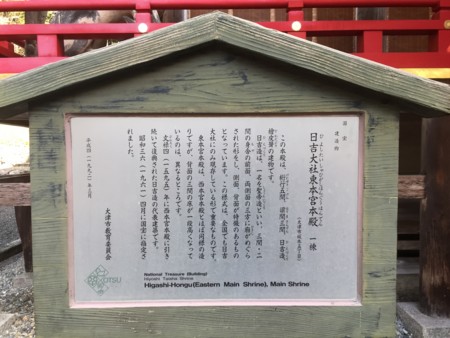 国宝
建造物
日吉大社東本宮本殿 一棟
(大津市坂本五丁目)
この本殿は、桁行五間、梁間三間、日吉造、
檜皮葺の建物です。
日吉造は、一名を聖帝造といい、三間・二
間の身舎の前面、両側面の三方に廂がめぐら
された形をし、側面、背面が特殊のあるもの
となっています。この様式は、全国でも日吉
大社にのみ現存している形で重要なものです。
東本宮本殿は、西本宮本殿とほぼ同様の造
りですが、背面の三間の床が一段高くなって
いるのは、異なるところです。
文禄四(一五九五)年に西本宮本殿に引き
続いて復興された日吉造の代表的建築です。
昭和三六(一九六一)四月に国宝に指定さ
れました。
平成四(一九九二)年三月
大津市教育委員会
OTSU
National Treasure (Building)
Hiyoshi Taisha Shrine
Higashi-Hongu(Eastern Main Shrine), Main Shrine